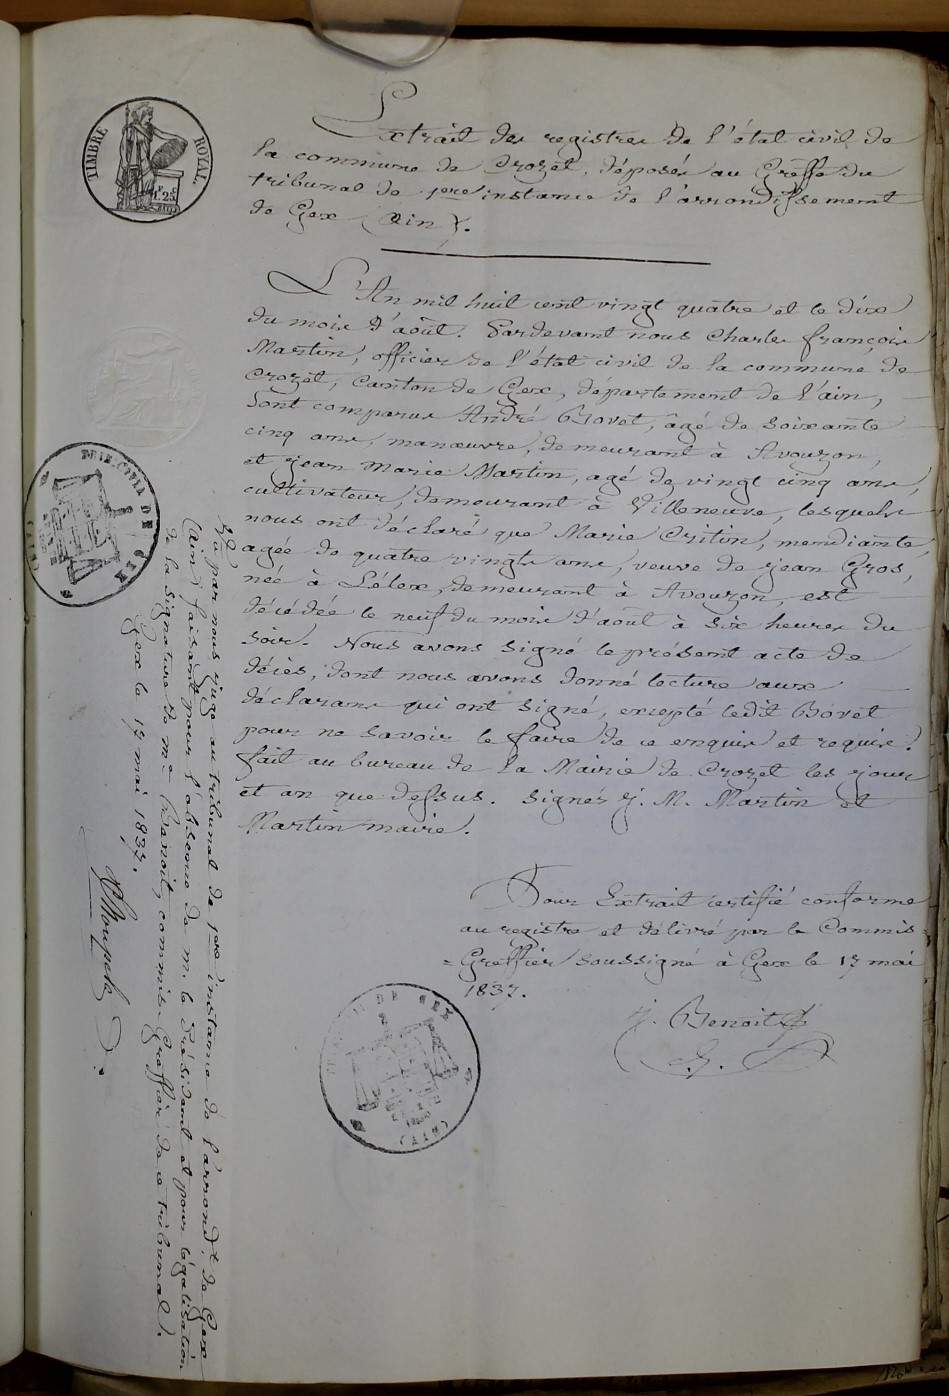 TIMBRE ROYAL
1.25
Extrait des registres de l'état civil de
la commune de Crozet, déposés au Greffe du
tribunal de 1ere instance de l'arrondissement
de Gex (Ain).
L'An mil huit cent vingt quatre et le dix
du mois d'août. Pardevant nous Charles françois
Martin, officier de l'état civil de la commune de
Crozet, Canton de Gex, département de l'ain,
Sont comparus André Bovet, âgé de soixante
cinq ans, manœuvre, demeurant à Avouzon,
et jean Marie Martin, agé de vingt cinq ans,
cultivateur, demeurant à Villeneuve, lesquels
nous ont déclaré que Marie Critin, mendiante,
agée de quatre vingts ans, veuve de jean Gros,
née à Lélex, demeurant à Avouzon, est
décédée le neuf du mois d'août à six heures du
soir. Nous avons signé le présent acte de
décès, dont nous avons donné lecture aux
déclarans qui ont signé, excepté ledit Bovet
pour ne savoir le faire de ce enquis et requis.
fait au bureau de la Mairie de Crozet les jour
et an que dessus. Signés J. M. Martin et
Martin maire.
Pour Extrait certifié conforme
au registre et délivré par le Commis
= Greffier soussigné à Gex le 17 mai
1837.
J. Benoit
DE GEX
(AIN)
Vu par nous juge au tribunal de 1ere instance de l'arrondt. de Gex
(Ain) faisant pour l'absence de m. le Président et pour légalisation
de la signature de Me Benoit, commis Greffier de ce tribunal.
Gex le 17 mai 1837.
DE GEX
(AIN)